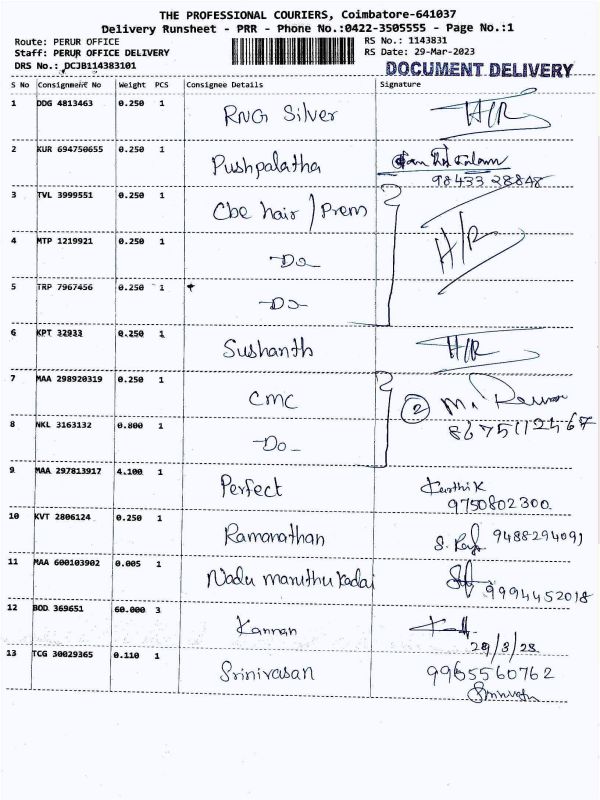 THE PROFESSIONAL COURIERS, Coimbatore-641037
Delivery Runsheet - PRR - Phone No.:0422-3505555 - Page No.:1
Route: PERUR OFFICE RS No.: 1143831
Staff: PERUR OFFICE DELIVERY RS Date: 29-Mar-2023
DRS No.: DCJB114383101 DOCUMENT DELIVERY
S No Consignment No Weight PCS Consignee Details Signature
1 DDG 4813463 0.250 1 RNG Silver H/R
2 KUR 694750655 0.250 1 Pushpalatha
98433 28848
3 TVL 3999551 0.250 1 Cbe hair / Prem
4 MTP 1219921 0.250 1 -Do- H/R
5 TRP 7967456 0.250 1 -Do-
6 KPT 32933 0.250 1 Sushanth H/R
7 MAA 298920319 0.250 1 CMC 2
8 NKL 3163132 0.800 1 -Do- 8675112567
9 MAA 297813917 4.100 1 Perfect Karthi K
9750802300
10 KVT 2806124 0.250 1 Ramanathan 9488294091
11 MAA 600103902 0.005 1 Nadu maruthu Kadai
9994452018
12 BOD 369651 60.000 3 Kannan
29/3/23
13 TCG 30029365 0.110 1 Srinivasan 9965560762